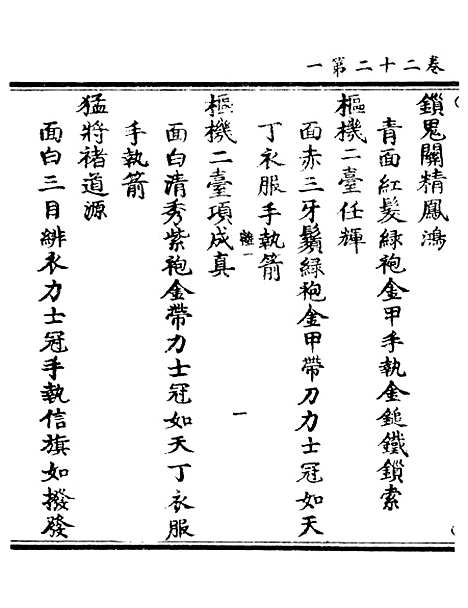 卷二十二第一
鎖鬼關精鳳鴻
青面紅髮綠袍金甲手執金鎚鐵鎖索
樞機二臺任輝
面赤三牙鬚綠袍金甲帶刀力士冠如天
丁衣服手執箭
樞機二臺項成真
面白清秀紫袍金帶力士冠如天丁衣服
手執箭
猛將褚道源
面白三目緋衣力士冠手執信旗如撥發
一